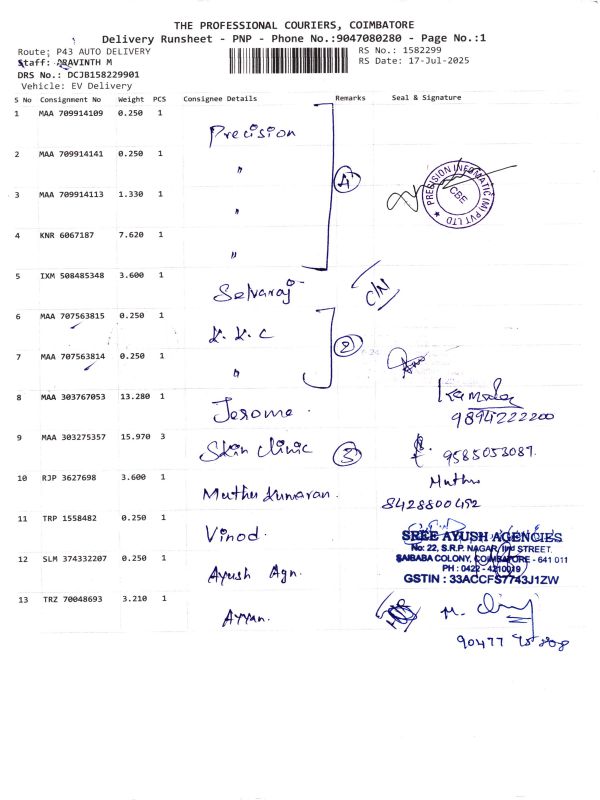 THE PROFESSIONAL COURIERS, COIMBATORE
Delivery Runsheet - PNP - Phone No.:9047080280 - Page No.:1
Route: P43 AUTO DELIVERY
RS No.: 1582299
Staff: ARAVINTH M
RS Date: 17-Jul-2025
DRS No.: DCJB158229901
Vehicle: EV Delivery
S No Consignment No Weight PCS Consignee Details Remarks Seal & Signature
1 MAA 709914109 0.250 1 Precision
2 MAA 709914141 0.250 1 "
3 MAA 709914113 1.330 1 "
4 KNR 6067187 7.620 1 "
4
PRECISION INFOMATIC (M) PVT LTD
CBE
5 IXM 508485348 3.600 1 Selvaraj C/N
6 MAA 707563815 0.250 1 K.K.C
7 MAA 707563814 0.250 1 "
2
8 MAA 303767053 13.280 1 Jerome.
9894222200
9 MAA 303275357 15.970 3 Skin clinic 3 9585053087.
10 RJP 3627698 3.600 1 Muthu Kumaran. Muthu
8428800492
11 TRP 1558482 0.250 1 Vinod.
12 SLM 374332207 0.250 1 Ayush Agn.
SREE AYUSH AGENCIES
No: 22, S.R.P. NAGAR, IInd STREET.
SAIBABA COLONY, COIMBATORE - 641 011
PH : 0422 - 4210019
GSTIN : 33ACCFS7743J1ZW
13 TRZ 70048693 3.210 1 Ayyan.
90477